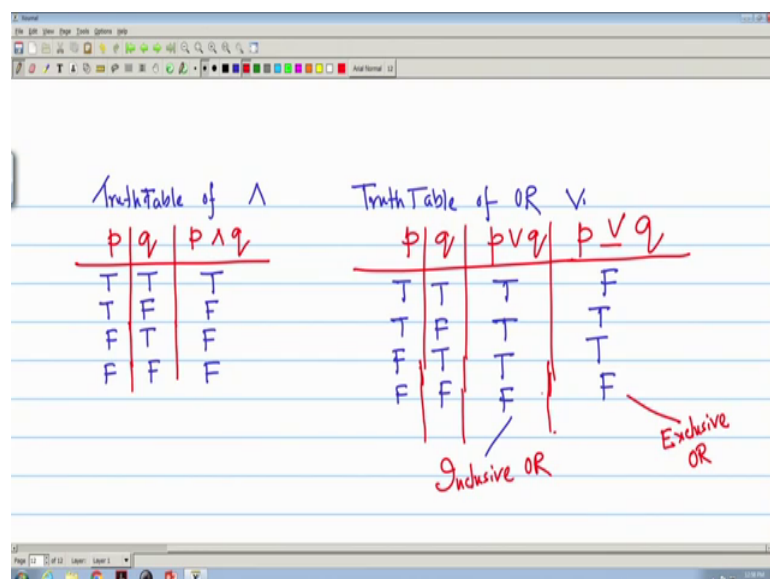 Journal
File Edit View Page Tools Options Help
Arial Normal 12
Truth Table of ∧
p q p ∧ q
T T T
T F F
F T F
F F F
Truth Table of OR ∨.
p q p ∨ q p ⊻ q
T T T F
T F T T
F T T T
F F F F
Inclusive OR
Exclusive
OR
Page 12 of 12 Layer: Layer 1